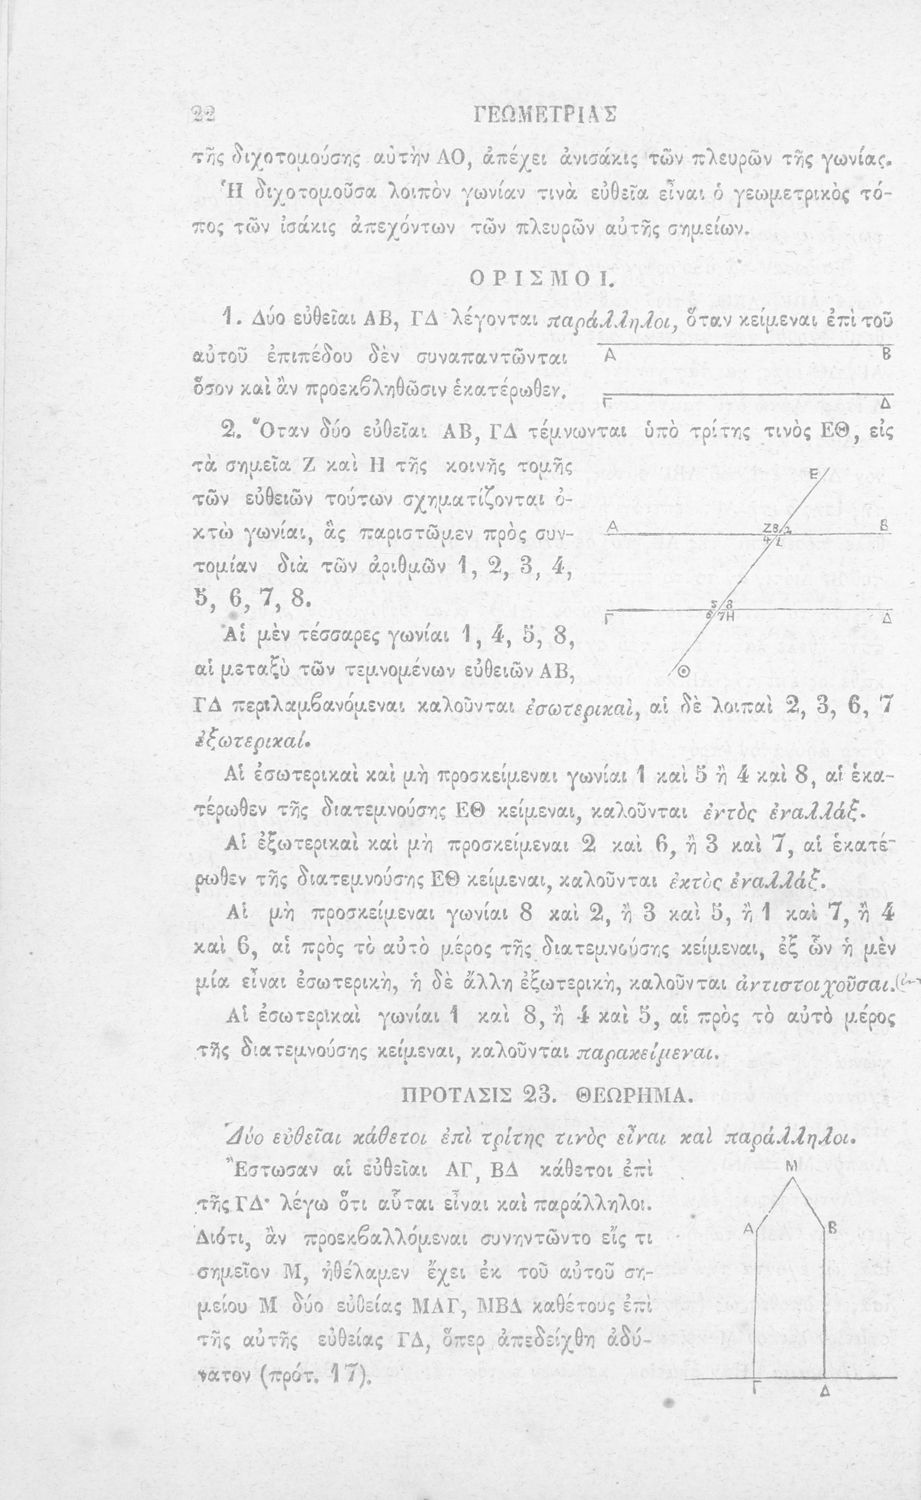 22 ΓΕΩΜΕΤΡΙΑΣ
τῆς διχοτομούσης αὐτὴν ΑΟ, ἀπέχει ἀνισάκις τῶν πλευρῶν τῆς γωνίας.
Ἡ διχοτομοῦσα λοιπὸν γωνίαν τινὰ εὐθεῖα εἶναι ὁ γεωμετρικὸς τό-
πος τῶν ἰσάκις ἀπεχόντων τῶν πλευρῶν αὐτῆς σημείων.
ΟΡΙΣΜΟΙ.
1. Δύο εὐθεῖαι ΑΒ, ΓΔ λέγονται παράλληλοι, ὅταν κείμεναι ἐπὶ τοῦ
αὐτοῦ ἐπιπέδου δὲν συναπαντῶνται
ὅσον καὶ ἂν προεκβληθῶσιν ἑκατέρωθεν.
Α Β
Γ Δ
2. Ὅταν δύο εὐθεῖαι ΑΒ, ΓΔ τέμνωνται ὑπὸ τρίτης τινὸς ΕΘ, εἰς
τὰ σημεῖα Ζ καὶ Η τῆς κοινῆς τομῆς
τῶν εὐθειῶν τούτων σχηματίζονται ὀ-
κτὼ γωνίαι, ἃς παριστῶμεν πρὸς συν-
τομίαν διὰ τῶν ἀριθμῶν 1, 2, 3, 4,
5, 6, 7, 8.
Αἱ μὲν τέσσαρες γωνίαι 1, 4, 5, 8,
αἱ μεταξὺ τῶν τεμνομένων εὐθειῶν ΑΒ,
Ε
Α Ζ3/2 Β
4/1
5/8
Γ 6/7Η Δ
Θ
ΓΔ περιλαμβανόμεναι καλοῦνται ἐσωτερικαὶ, αἱ δὲ λοιπαὶ 2, 3, 6, 7
ἐξωτερικαί.
Αἱ ἐσωτερικαὶ καὶ μὴ προσκείμεναι γωνίαι 1 καὶ 5 ἢ 4 καὶ 8, αἱ ἑκα-
τέρωθεν τῆς διατεμνούσης ΕΘ κείμεναι, καλοῦνται ἐντὸς ἐναλλάξ.
Αἱ ἐξωτερικαὶ καὶ μὴ προσκείμεναι 2 καὶ 6, ἢ 3 καὶ 7, αἱ ἑκατέ-
ρωθεν τῆς διατεμνούσης ΕΘ κείμεναι, καλοῦνται ἐκτὸς ἐναλλάξ.
Αἱ μὴ προσκείμεναι γωνίαι 8 καὶ 2, ἢ 3 καὶ 5, ἢ 1 καὶ 7, ἢ 4
καὶ 6, αἱ πρὸς τὸ αὐτὸ μέρος τῆς διατεμνούσης κείμεναι, ἐξ ὧν ἡ μὲν
μία εἶναι ἐσωτερικὴ, ἡ δὲ ἄλλη ἐξωτερικὴ, καλοῦνται ἀντιστοιχοῦσαι.
Αἱ ἐσωτερικαὶ γωνίαι 1 καὶ 8, ἢ 4 καὶ 5, αἱ πρὸς τὸ αὐτὸ μέρος
τῆς διατεμνούσης κείμεναι, καλοῦνται παρακείμεναι.
ΠΡΟΤΑΣΙΣ 23. ΘΕΩΡΗΜΑ.
Δύο εὐθεῖαι κάθετοι ἐπὶ τρίτης τινὸς εἶναι καὶ παράλληλοι.
Ἔστωσαν αἱ εὐθεῖαι ΑΓ, ΒΔ κάθετοι ἐπὶ
τῆς ΓΔ· λέγω ὅτι αὗται εἶναι καὶ παράλληλοι.
Διότι, ἂν προεκβαλλόμεναι συνηντῶντο εἴς τι
σημεῖον Μ, ἠθέλαμεν ἔχει ἐκ τοῦ αὐτοῦ ση-
μείου Μ δύο εὐθείας ΜΑΓ, ΜΒΔ καθέτους ἐπὶ
τῆς αὐτῆς εὐθείας ΓΔ, ὅπερ ἀπεδείχθη ἀδύ-
νατον (πρότ. 17).
Μ
Α Β
Γ Δ